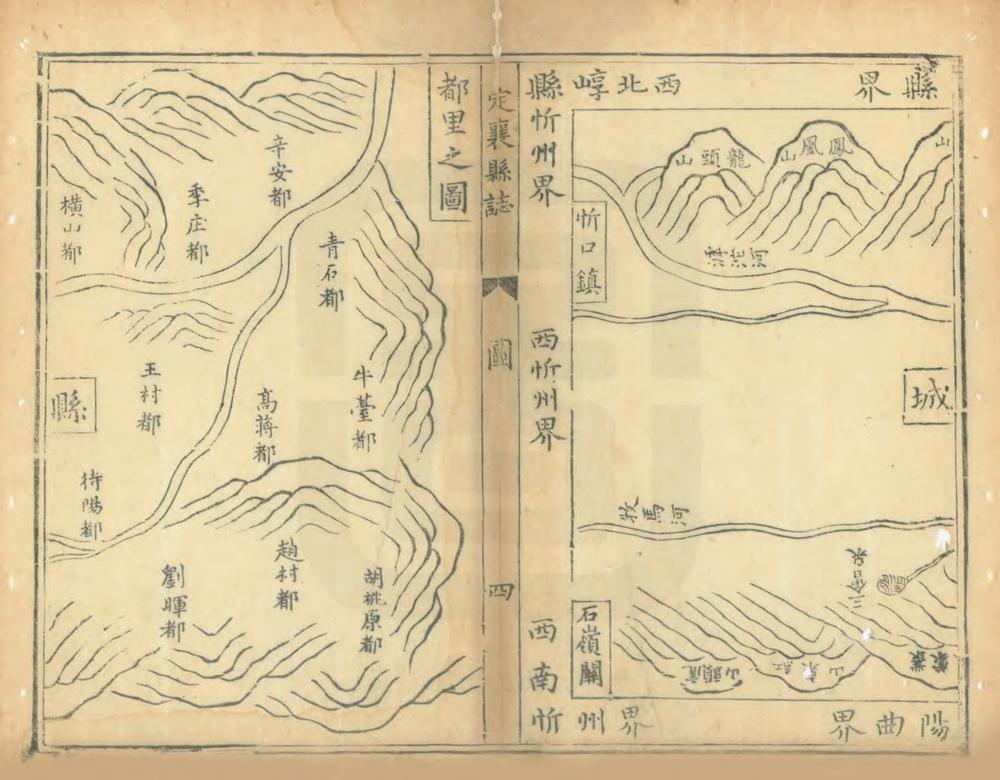 縣界
西北崞
縣忻州界
西忻州界
西南忻
州界
陽曲界
山
鳳凰山
龍頭山
滹沱河
忻口鎮
城
牧馬河
三會泉
石嶺關
定襄縣誌
圖
四
都里之圖
辛安都
季庄都
橫山都
青石都
牛臺都
高蔣都
王村都
縣
待陽都
胡桃原都
趙村都
劉暉都